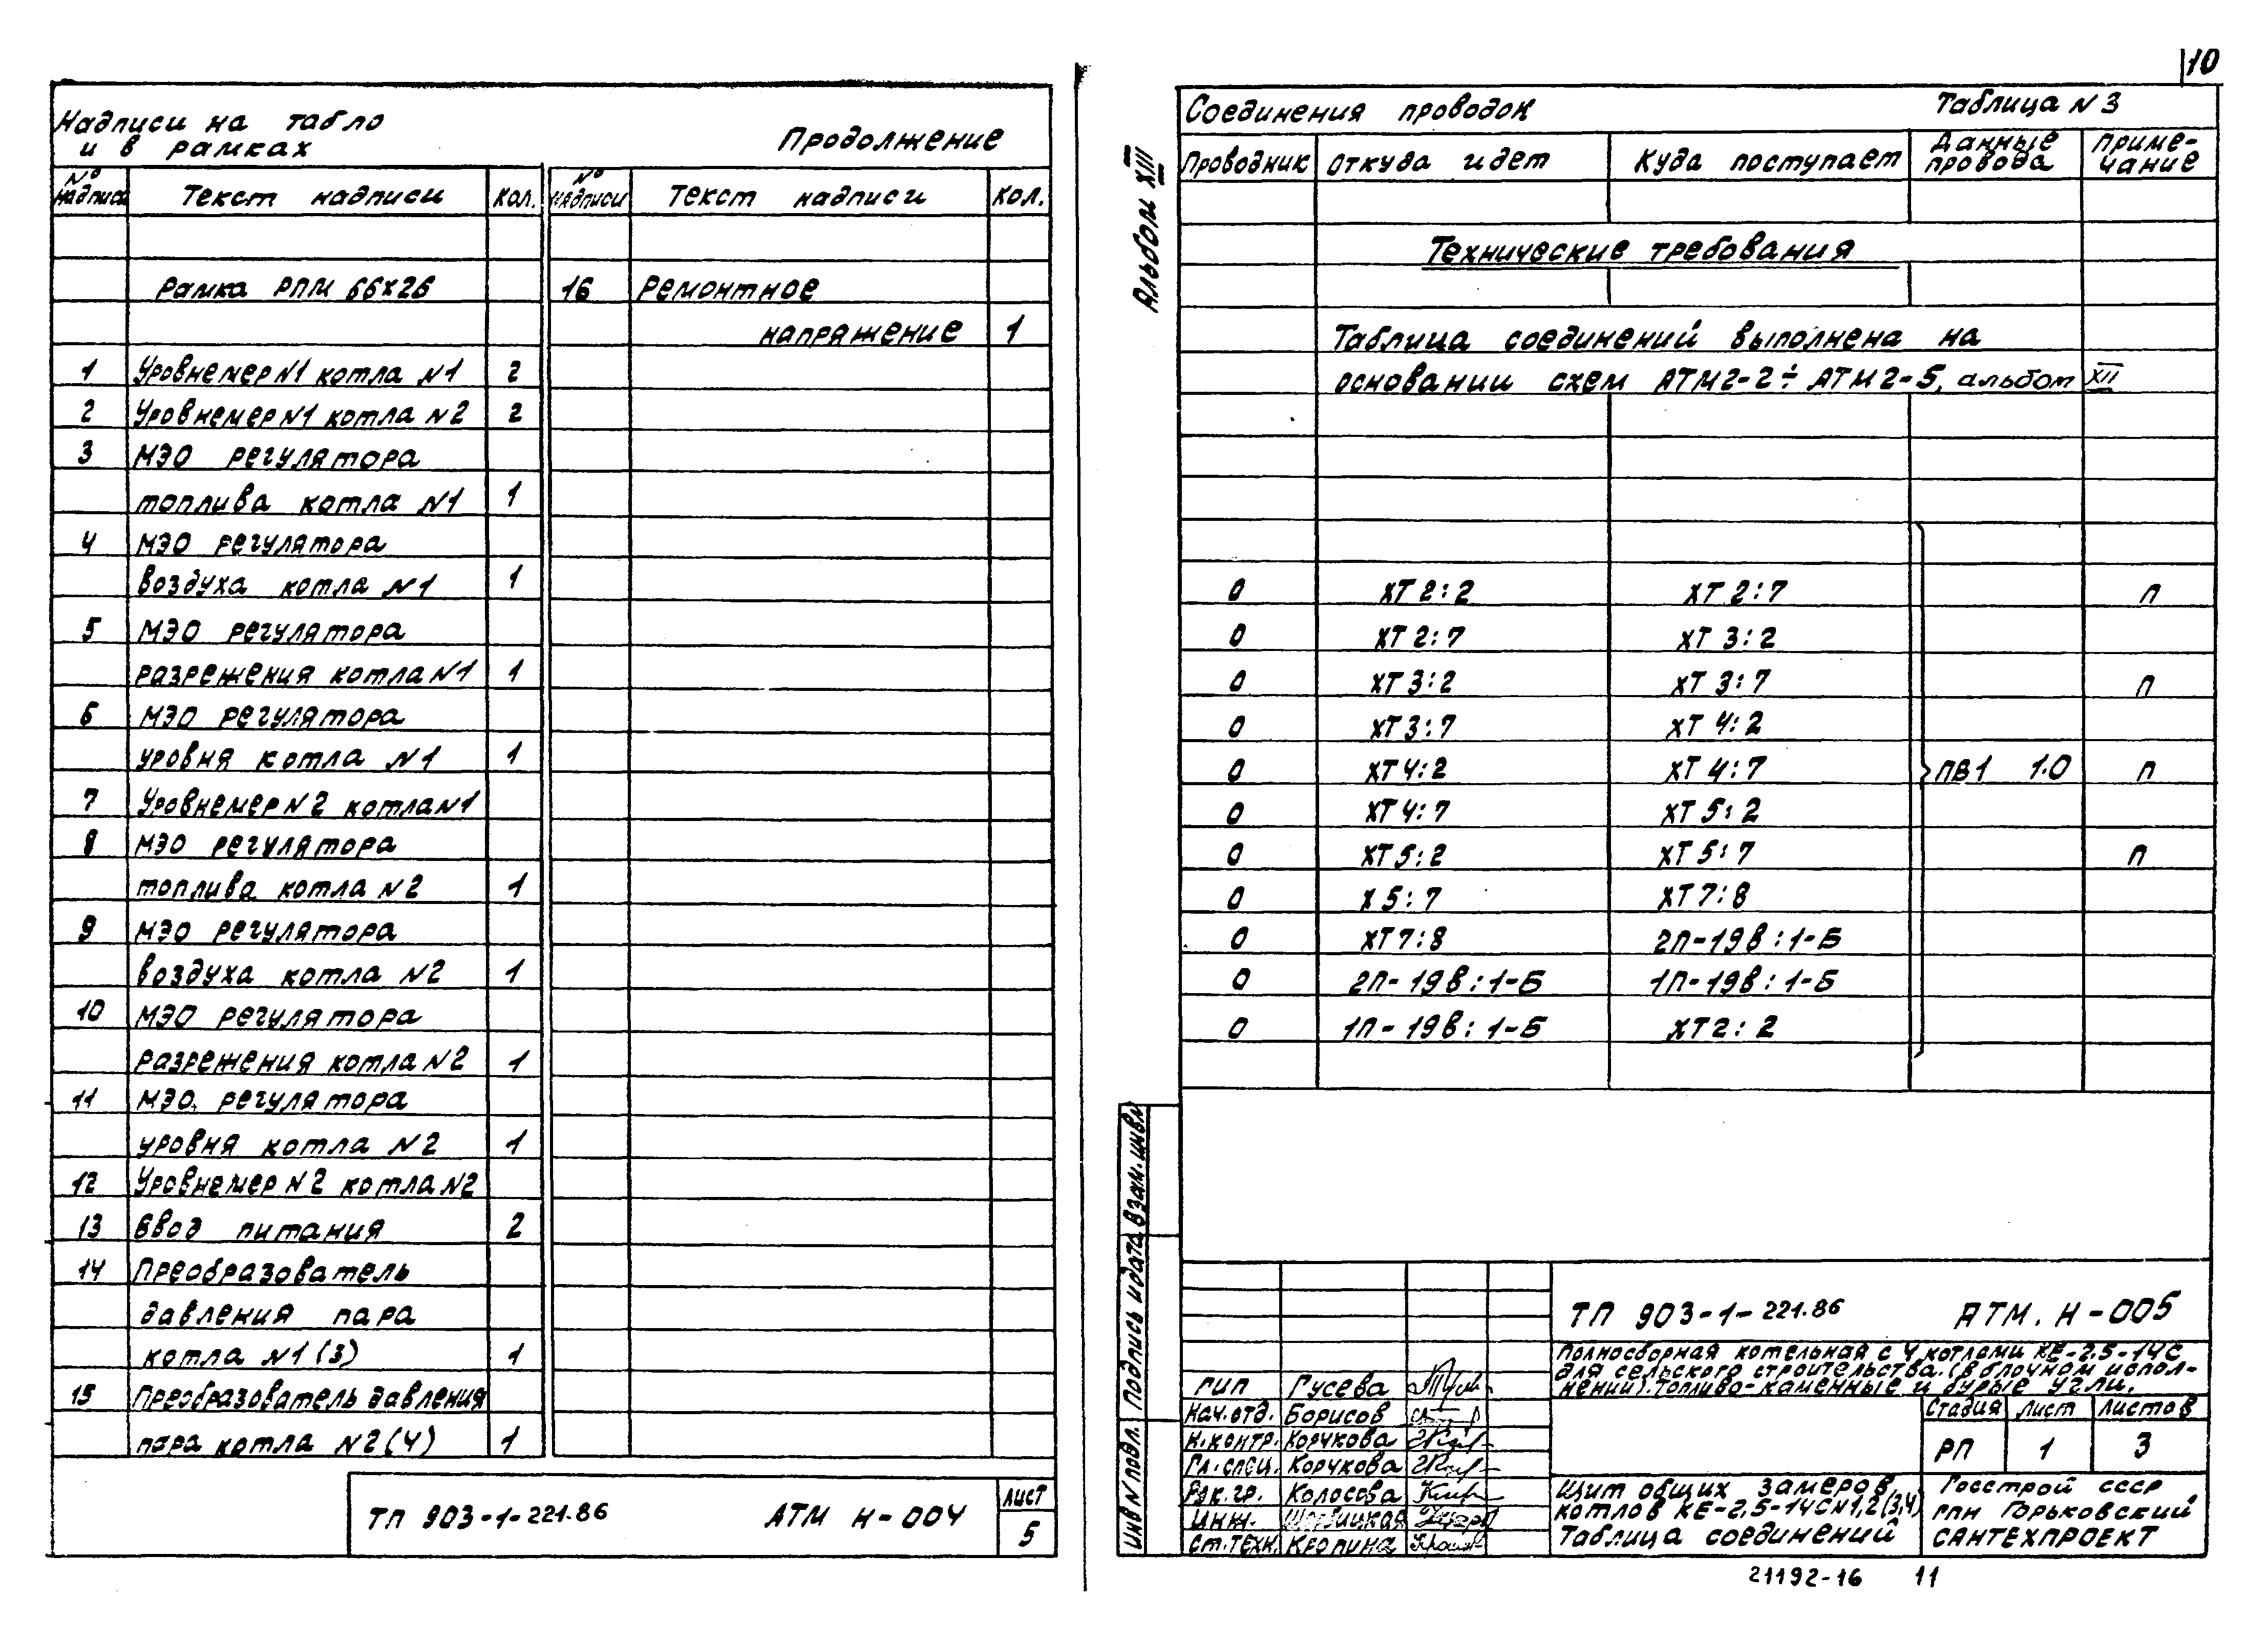 10
Надписи на табло
и в рамках
Продолжение
№ надписи Текст надписи Кол. № надписи Текст надписи Кол.
Рамка РПМ 66х26 16 Ремонтное
напряжение 1
1 Уровнемер N1 котла N1 2
2 Уровнемер N1 котла N2 2
3 МЭО регулятора
топлива котла N1 1
4 МЭО регулятора
воздуха котла N1 1
5 МЭО регулятора
разрежения котла N1 1
6 МЭО регулятора
уровня котла N1 1
7 Уровнемер N2 котла N1
8 МЭО регулятора
топлива котла N2 1
9 МЭО регулятора
воздуха котла N2 1
10 МЭО регулятора
разрежения котла N2 1
11 МЭО регулятора
уровня котла N2 1
12 Уровнемер N2 котла N2
13 Ввод питания 2
14 Преобразователь
давления пара
котла N1 (3) 1
15 Преобразователь давления
пара котла N2 (4) 1
ТП 903-1-221.86 АТМ Н-004 Лист 5
Альбом XIII
Соединения проводок Таблица N 3
Проводник Откуда идет Куда поступает Данные провода Примечание
Технические требования
Таблица соединений выполнена на
основании схем АТМ2-2÷АТМ2-5, альбом XII
0 ХТ 2:2 ХТ 2:7 п
0 ХТ 2:7 ХТ 3:2
0 ХТ 3:2 ХТ 3:7 п
0 ХТ 3:7 ХТ 4:2
0 ХТ 4:2 ХТ 4:7 ПВ1 1.0 п
0 ХТ 4:7 ХТ 5:2
0 ХТ 5:2 ХТ 5:7 п
0 Х 5:7 ХТ 7:8
0 ХТ 7:8 2П-19в:1-Б
0 2П-19в:1-Б 1П-19в:1-Б
0 1П-19в:1-Б ХТ2:2
Взам.инв.N
Подпись и дата
Инв N подл.
ТП 903-1-221.86 АТМ.Н-005
Полносборная котельная с 4 котлами КЕ-2.5-14С
для сельского строительства.(в блочном испол-
нении).Топливо-каменные и бурые угли.
ГИП Гусева
Нач.отд. Борисов
Н.контр. Корчкова
Гл.спец. Корчкова
Рук.гр. Колосова
Инж.
Ст.техн. Кропина
Стадия Лист Листов
РП 1 3
Щит общих замеров
котлов КЕ-2,5-14С N1,2(3,4)
Таблица соединений
Госстрой СССР
ГПИ Горьковский
САНТЕХПРОЕКТ
21192-16 11